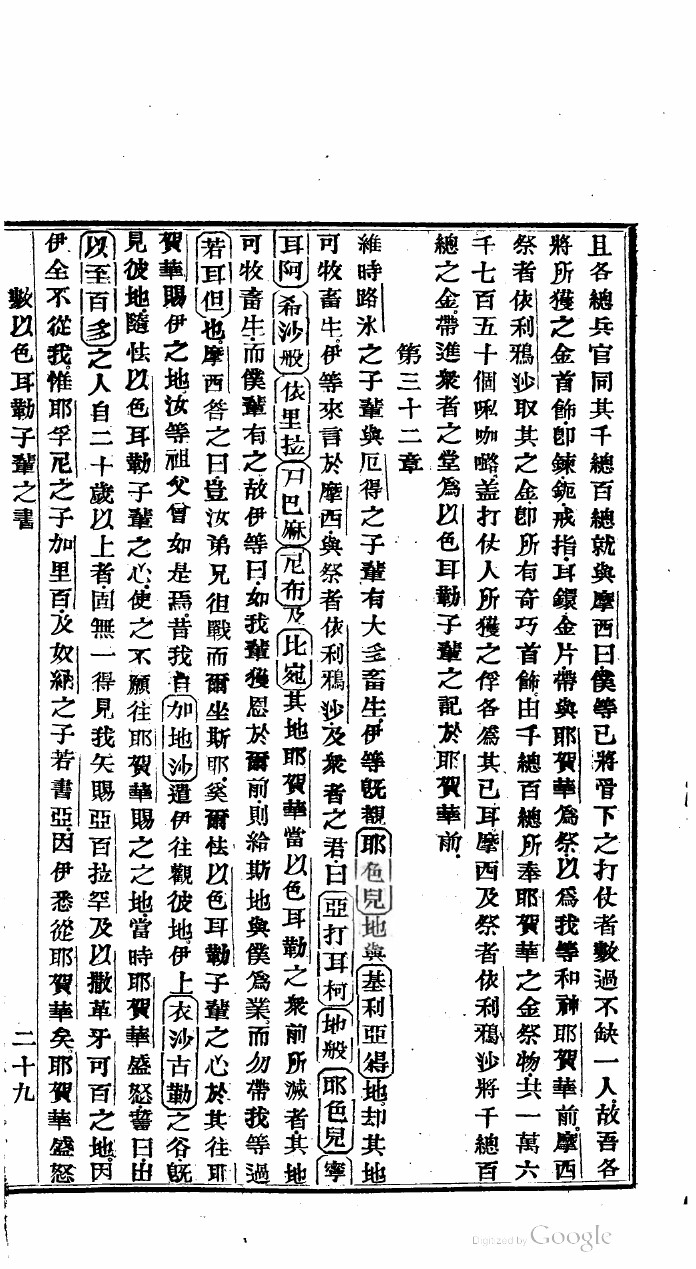 且各總兵官同其千總百總就與摩西曰僕等已將管下之打仗者數過不缺一人故吾各
將所獲之金首飾即鍊鈪戒指耳鐶金片帶與耶賀華為祭以為我等和神耶賀華前摩西
祭者依利鴉沙取其之金即所有奇巧首飾由千總百總所奉耶賀華之金祭物共一萬六
千七百五十個㖠咖𠺘蓋打仗人所獲之俘各為其已耳摩西及祭者依利鴉沙將千總百
總之金帶進眾者之堂為以色耳勒子輩之記於耶賀華前
第三十二章
維時路氷之子輩與厄得之子輩有大多畜生伊等既觀耶色兒地與基利亞得地却其地
可牧畜生伊等來言於摩西與祭者依利鴉沙及眾者之君曰亞打耳柯地般耶色兒寧
耳阿希沙般依里拉尸巴麻尼布及比宛其地耶賀華當以色耳勒之眾前所滅者其地
可牧畜生而僕輩有之故伊等曰如我輩獲恩於爾前則給斯地與僕為業而勿帶我等過
若耳但也摩西答之曰豈汝弟兄徂戰而爾坐斯耶奚爾怯以色耳勒子輩之心於其往耶
賀華賜伊之地汝等祖父曾如是焉昔我自加地沙遣伊往觀彼地伊上衣沙古勒之谷既
見彼地隨怯以色耳勒子輩之心使之不願往耶賀華賜之之地當時耶賀華盛怒誓曰由
以至百多之人自二十歲以上者固無一得見我矢賜亞百拉罕及以撒革牙可百之地因
伊全不從我惟耶孚尼之子加里百及奴納之子若書亞因伊悉從耶賀華矣耶賀華盛怒
數以色耳勒子輩之書 二十九
Digitized by Google